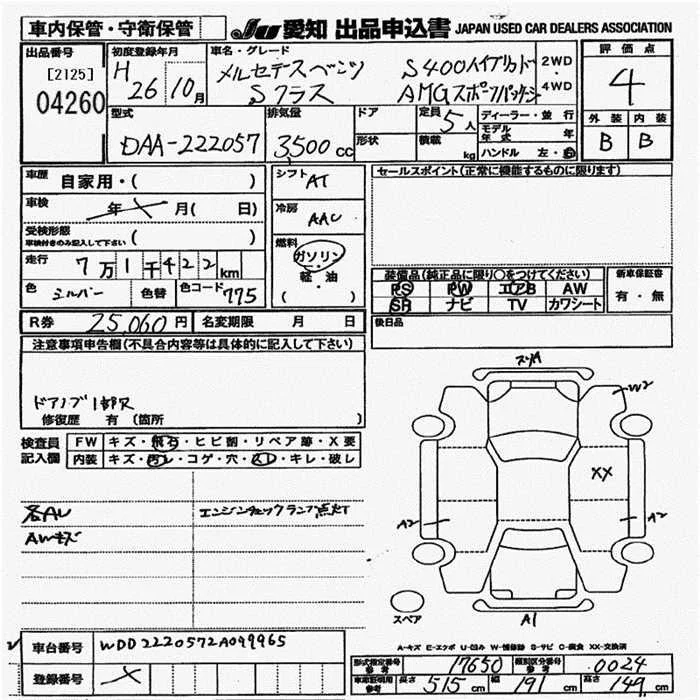 車内保管・守衛保管
JU 愛知 出品申込書 JAPAN USED CAR DEALERS ASSOCIATION
出品番号
[2125]
04260
初度登録年月
H 26 10月
車名・グレード
メルセデスベンツ S400ハイブリッド
Sクラス AMGスポーツパッケージ
2WD
4WD
評価点
4
外装 内装
B B
型式
DAA-222057
排気量
3500 cc
ドア
形状
定員 5人
積載 kg
ディーラー・並行
モデル年式 年
ハンドル 左・右
車歴 自家用・( )
車検 年 月( 日)
受検形態
車検付きのみ記入して下さい ( )
走行 7万1千422km
色 シルバー 色替 色コード 775
シフト AT
冷房 AAC
燃料
ガソリン
軽・油
( )
セールスポイント(正常に機能するものに限ります)
装備品(純正品に限り○をつけてください)
PS PW エアB AW
SR ナビ TV カワシート
新車保証書
有・無
R券 25,060円 名変期限 月 日
後日品
注意事項申告欄(不具合内容等は具体的に記入して下さい)
ドアノブ1部欠
修復歴 有 (箇所 )
検査員
記入欄
FW キズ・飛石・ヒビ割・リペア跡・X要
内装 キズ・汚レ・コゲ・穴・スレ・キレ・破レ
各AU エンジンチェックランプ点灯
AWキズ
スリA
W2
XX
A2
A2
A1
スペア
A-キズ E-エクボ U-凹み W-補修跡 S-サビ C-腐食 XX-交換済
車台番号 WDD2220572A099965
登録番号
型式指定番号 参考 17650 類別区分番号 参考 0024
車庫証明用 参考 長さ 515cm 幅 191cm 高さ 149cm